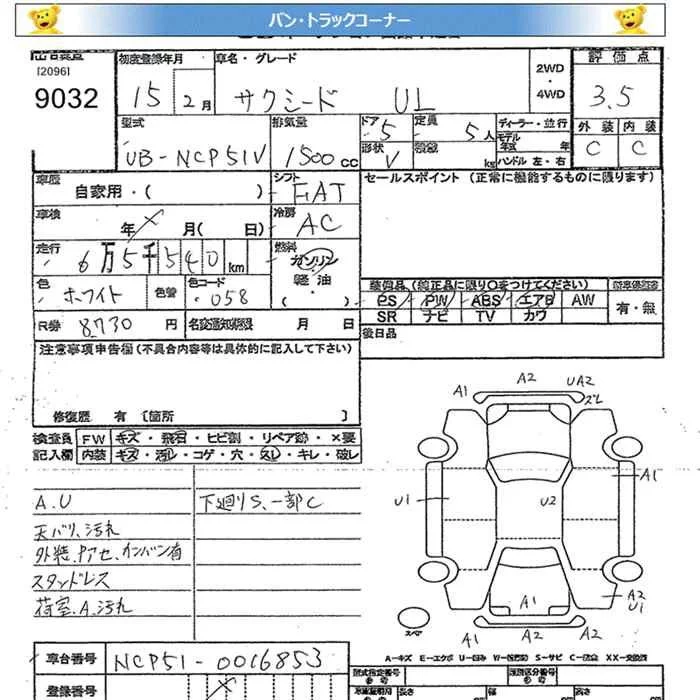 バン・トラックコーナー
[2096]
9032
初度登録年月
15 2月
車名・グレード
サクシード UL
2WD
・
4WD
評価点
3.5
外装 内装
C C
型式
UB-NCP51V
排気量
1500cc
ドア 5
形状 V
定員 5人
kg
ディーラー・並行
モデル
年式 年
ハンドル 左・右
車歴
自家用・( )
シフト
FAT
セールスポイント (正常に機能するものに限ります)
車検
年 月( 日)
冷房
AC
走行
6万5千540km
燃料
ガソリン
軽油
・( )
色
ホワイト
色替
色コード
・058
R券 8730 円
名変通知期限 月 日
装備品 (純正品に限り○をつけてください)
PS PW ABS エアB AW
SR ナビ TV カワ
有・無
後日品
注意事項申告欄 (不具合内容等は具体的に記入して下さい)
修復歴 有 [箇所 ]
検査員
記入欄
FW キズ・飛石・ヒビ割・リペア跡・×要
内装 キズ・汚レ・コゲ・穴・スレ・キレ・破レ
A.U
天バリ、汚れ
スタッドレス
荷室.A.汚れ
下廻りS、一部C
A1 A2 UA2
スレ
U1 U2 A1
A1 A2
U1
スペア
A1 A2 A2
A-キズ E-エクボ U-凹み W-板金跡 S-サビ C-腐食 XX-交換済
車台番号 NCP51-0016853
登録番号
型式指定番号 類別区分番号
長さ 幅 高さ